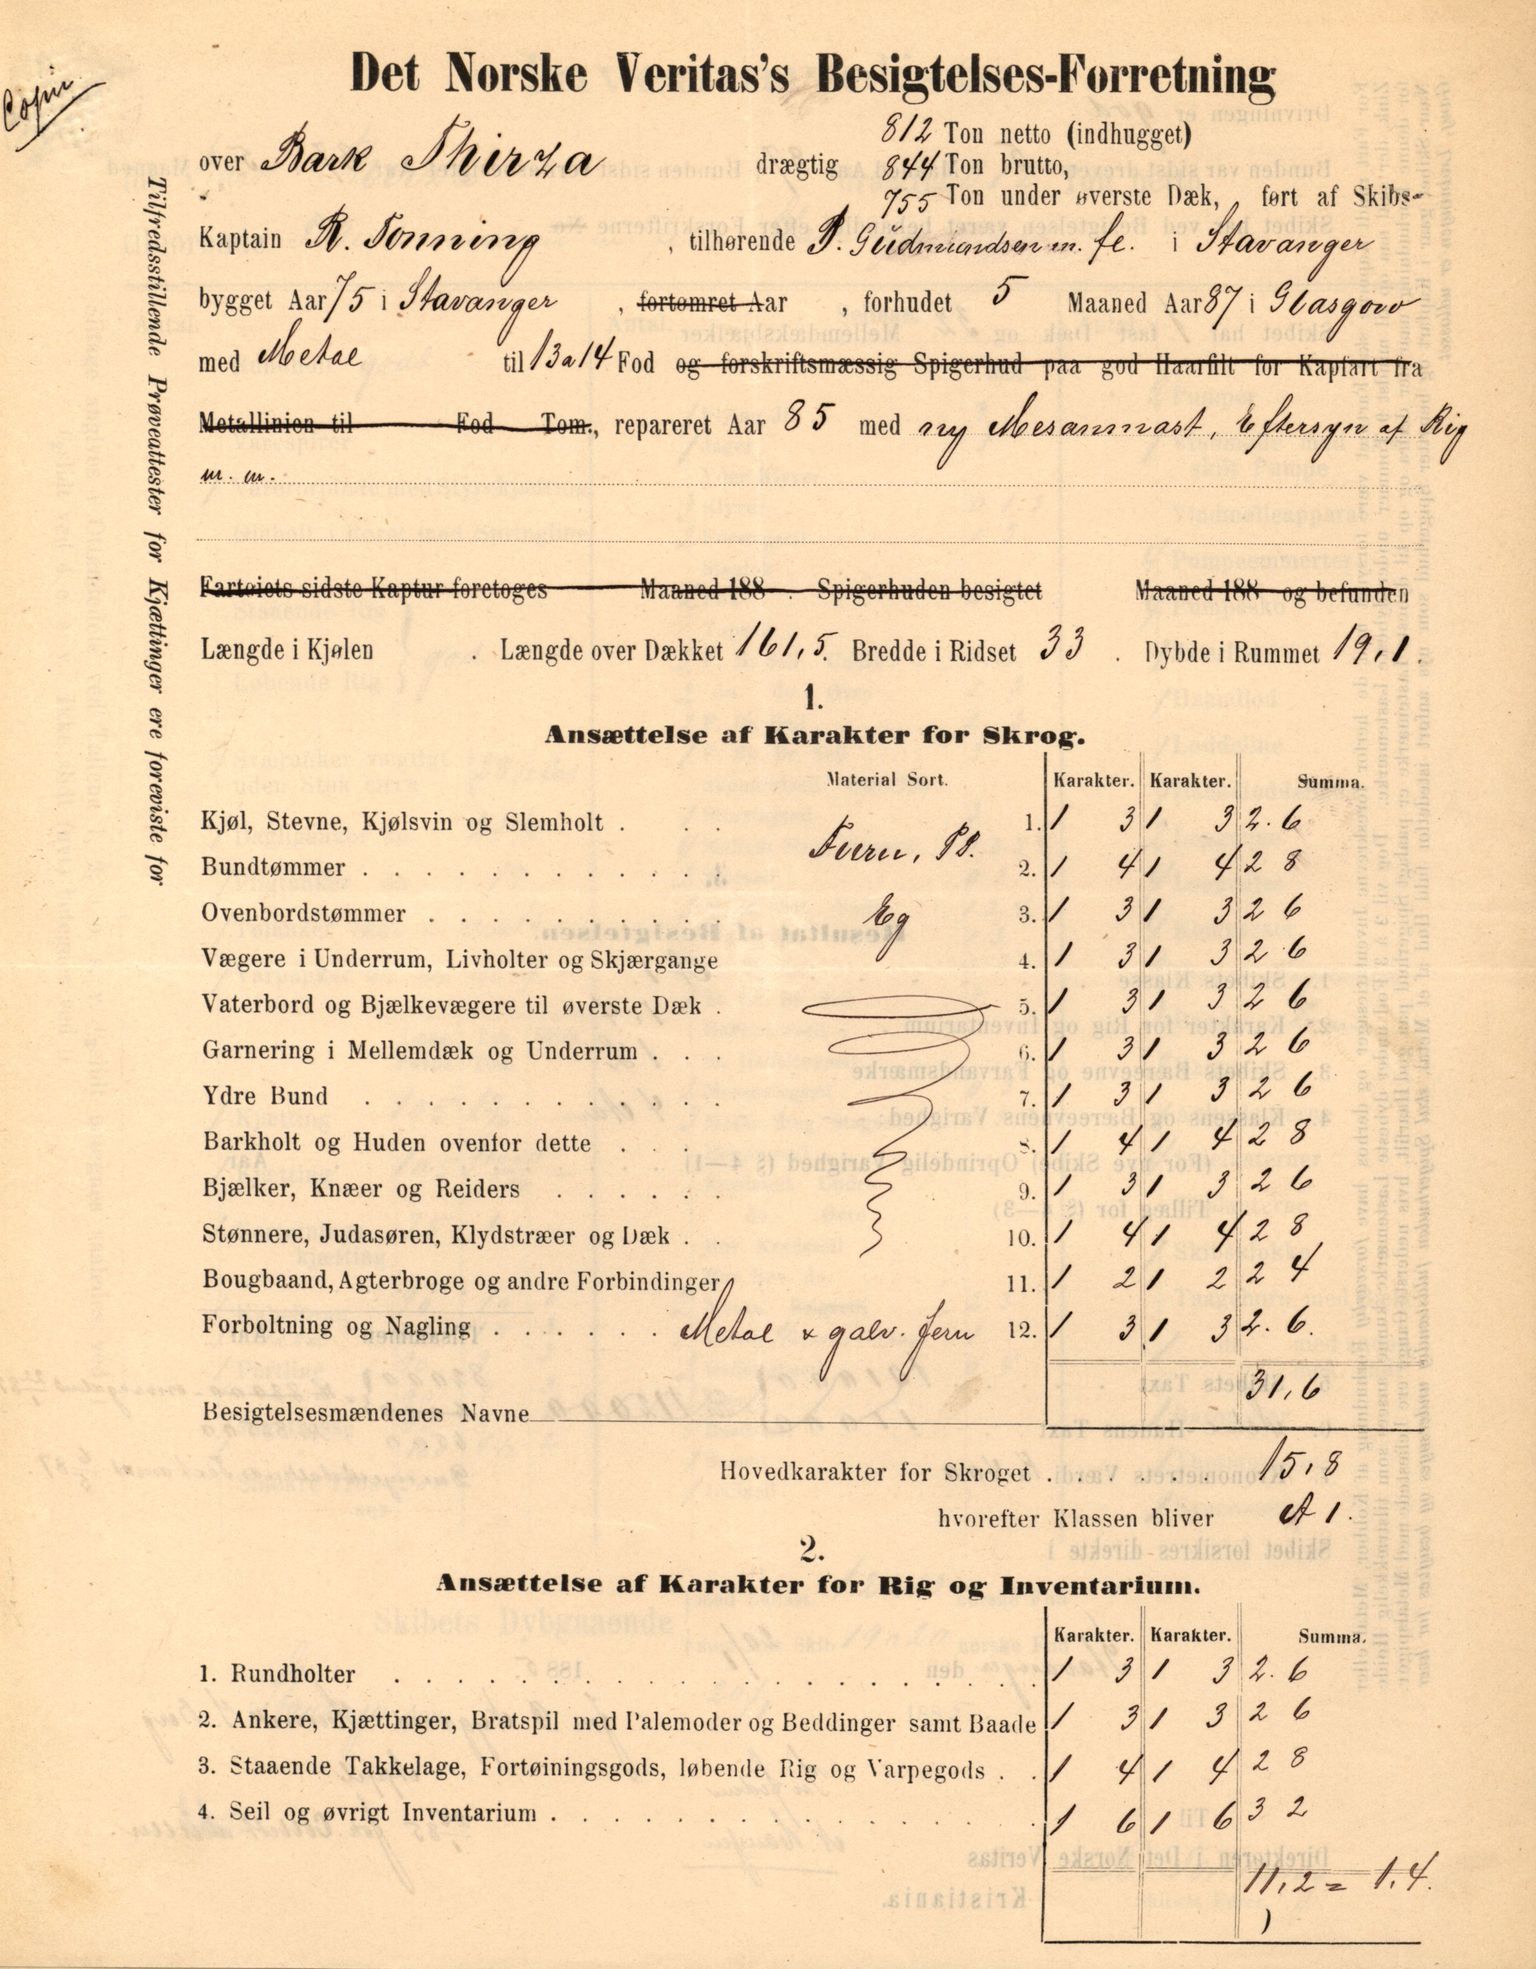 Copie
Det Norske Veritas's Besigtelses-Forretning
812 Ton netto (indhugget)
over Bark Thirza drægtig 844 Ton brutto,
755 Ton under øverste Dæk, ført af Skibs-
Kaptain R. Tonning, tilhørende P. Gudmundsen m. fl. i Stavanger
bygget Aar 75 i Stavanger, fortømret Aar , forhudet 5 Maaned Aar 87 i Glasgow
med Metal til 13 a 14 Fod og forskriftsmæssig Spigerhud paa god Haarfilt for Kapfart fra
Metallinien til Fod Tom., repareret Aar 85 med ny Mesanmast, Eftersyn af Rig
m. m.
Fartøiets sidste Kaptur foretoges Maaned 188 . Spigerhuden besigtet Maaned 188 og befunden
Længde i Kjølen . Længde over Dækket 161,5. Bredde i Ridset 33 . Dybde i Rummet 19,1.
1.
Ansættelse af Karakter for Skrog.
Material Sort. Karakter. Karakter. Summa.
Kjøl, Stevne, Kjølsvin og Slemholt . . . 1. 1 3 1 3 2.6
Furu, PP.
Bundtømmer . . . . . . . . . . . . 2. 1 4 1 4 2 8
Ovenbordstømmer . . . . . . . . . . Eg 3. 1 3 1 3 2 6
Vægere i Underrum, Livholter og Skjærgange 4. 1 3 1 3 2 6
Vaterbord og Bjælkevægere til øverste Dæk . 5. 1 3 1 3 2 6
Garnering i Mellemdæk og Underrum . . . 6. 1 3 1 3 2 6
Ydre Bund . . . . . . . . . . . . 7. 1 3 1 3 2 6
Barkholt og Huden ovenfor dette . . . 8. 1 4 1 4 2 8
Bjælker, Knæer og Reiders . . . . . . 9. 1 3 1 3 2 6
Stønnere, Judasøren, Klydstræer og Dæk . . 10. 1 4 1 4 2 8
Bougbaand, Agterbroge og andre Forbindinger 11. 1 2 1 2 2 4
Forboltning og Nagling . . . . . . Metal & galv. Jern 12. 1 3 1 3 2.6.
31,6
Besigtelsesmændenes Navne
Hovedkarakter for Skroget . . . . . . 15,8
hvorefter Klassen bliver A 1.
2.
Ansættelse af Karakter for Rig og Inventarium.
Karakter. Karakter. Summa.
1. Rundholter . . . . . . . . . . . . . . . . . . 1 3 1 3 2.6
2. Ankere, Kjættinger, Bratspil med Palemoder og Beddinger samt Baade 1 3 1 3 2 6
3. Staaende Takkelage, Fortøiningsgods, løbende Rig og Varpegods . . 1 4 1 4 2 8
4. Seil og øvrigt Inventarium . . . . . . . . . . . . . . 1 6 1 6 3 2
11,2 = 1.4.
Tilfredsstillende Prøveattester for Kjættinger ere foreviste for